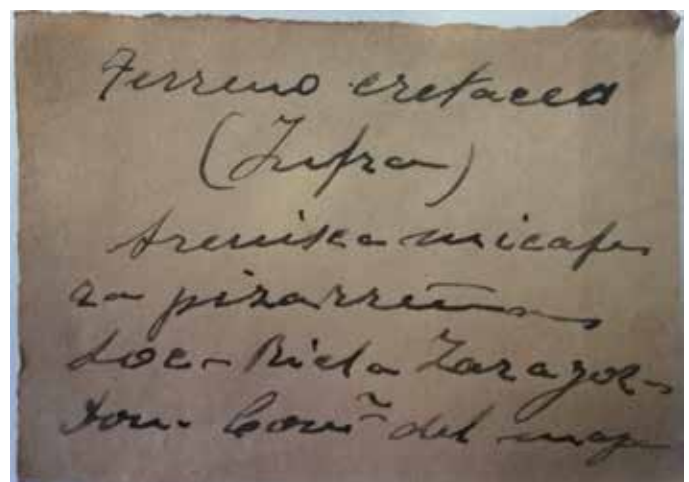 Terreno cretaceo
(Infra)
Arenisca micafe
ra pizarreña
Loc- Ricla Zaragoz-
Don. Comⁿ del mapa